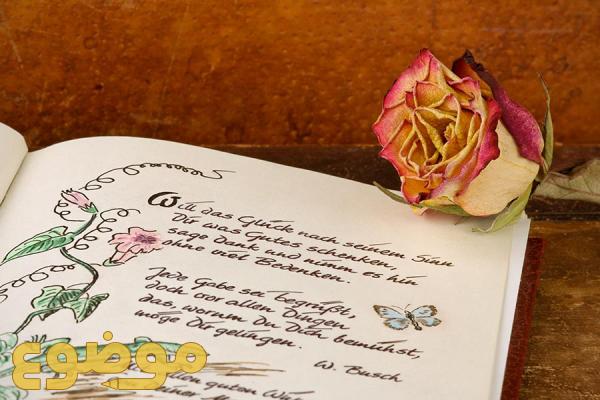 Will das Glück nach seinem Sinn
Dir was Gutes schenken,
sage Dank und nimm es hin
ohne viel Bedenken.
Jede Gabe sei begrüßt,
doch vor allen Dingen
das, worum Du Dich bemühst,
möge Dir gelingen.
W. Busch
allen guten
موضوع